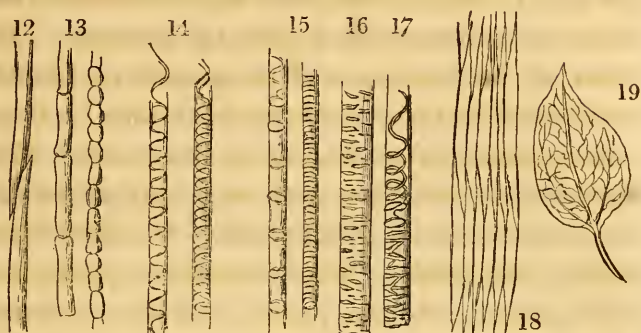 12 13 14 15 16 17
19
18